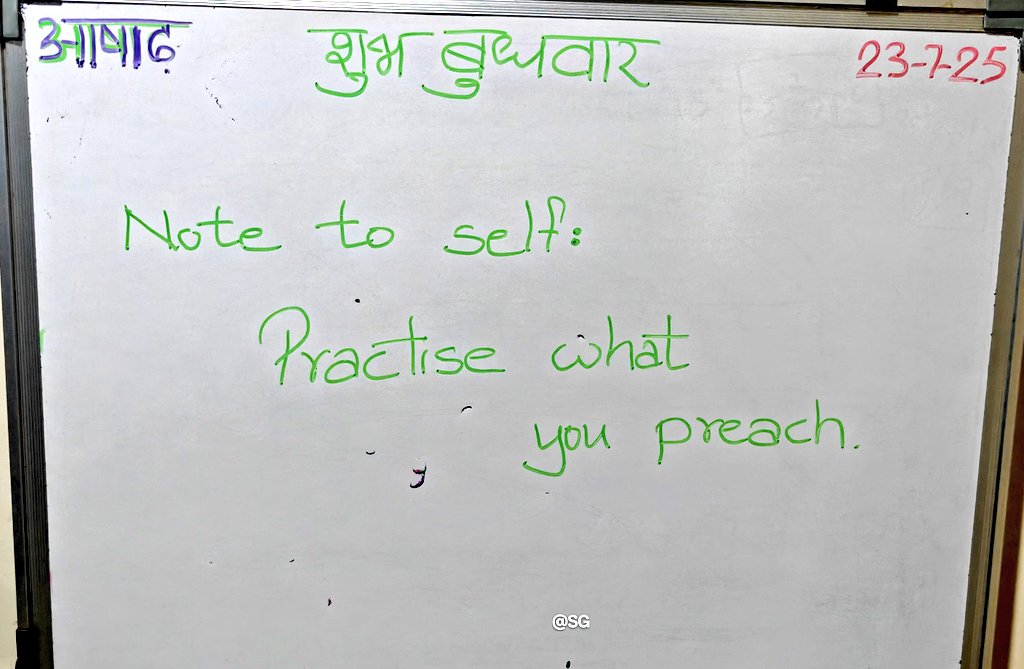 आषाढ़ शुभ बुधवार 23-7-25
Note to self:
Practise what
you preach.
@SG